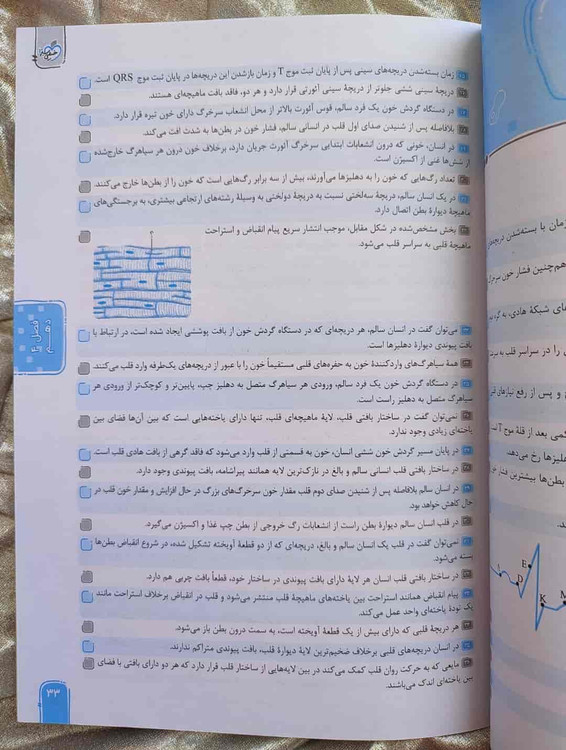 زمان بسته‌شدن دریچه‌های سینی پس از پایان ثبت موج T و زمان بازشدن این دریچه‌ها در پایان ثبت موج QRS است.
دریچهٔ سینی ششی جلوتر از دریچهٔ سینی آئورتی قرار دارد و هر دو، فاقد بافت ماهیچه‌ای هستند.
در دستگاه گردش خون یک فرد سالم، قوس آئورت بالاتر از محل انشعاب سرخرگ دارای خون تیره قرار دارد.
بلافاصله پس از شنیدن صدای اول قلب در انسانی سالم، فشار خون در بطن‌ها به شدت افت می‌کند.
در انسان، خونی که درون انشعابات ابتدایی سرخرگ آئورت جریان دارد، برخلاف خون درون هر سیاهرگ خارج‌شده
از شش‌ها غنی از اکسیژن است.
تعداد رگ‌هایی که خون را به دهلیزها می‌آورند، بیش از سه برابر رگ‌هایی است که خون را از بطن‌ها خارج می‌کنند.
در یک انسان سالم، دریچهٔ سه‌لختی نسبت به دریچهٔ دولختی به وسیلهٔ رشته‌های ارتجاعی بیشتری، به برجستگی‌های
ماهیچهٔ دیوارهٔ بطن اتصال دارد.
بخش مشخص‌شده در شکل مقابل، موجب انتشار سریع پیام انقباض و استراحت
ماهیچهٔ قلبی به سراسر قلب می‌شود.
می‌توان گفت در انسان سالم، هر دریچه‌ای که در دستگاه گردش خون از بافت پوششی ایجاد شده است، در ارتباط با
بافت پیوندی دیوارهٔ دهلیزها است.
همهٔ سیاهرگ‌های واردکنندهٔ خون به حفره‌های قلبی مستقیماً خون را با عبور از دریچه‌های یک‌طرفه وارد قلب می‌کنند.
در دستگاه گردش خون یک فرد سالم، ورودی هر سیاهرگ متصل به دهلیز چپ، پایین‌تر و کوچک‌تر از ورودی هر
سیاهرگ متصل به دهلیز راست است.
نمی‌توان گفت در ساختار بافتی قلب، لایهٔ ماهیچه‌ای قلب، تنها دارای یاخته‌هایی است که بین آن‌ها فضای بین
یاخته‌ای زیادی وجود ندارد.
در پایان مسیر گردش خون ششی انسان، خون به قسمتی از قلب وارد می‌شود که فاقد گرهی از بافت هادی قلب است.
در ساختار بافتی قلب انسانی سالم و بالغ در نازک‌ترین لایه همانند پیراشامه، بافت پیوندی وجود دارد.
در انسان سالم بلافاصله پس از شنیدن صدای دوم قلب مقدار خون سرخرگ‌های بزرگ در حال افزایش و مقدار خون قلب در
حال کاهش خواهد بود.
در قلب انسان سالم دیوارهٔ بطن راست از انشعابات رگ خروجی از بطن چپ غذا و اکسیژن می‌گیرد.
نمی‌توان گفت در قلب یک انسان سالم و بالغ، دریچه‌ای که از دو قطعهٔ آویخته تشکیل شده، در شروع انقباض بطن‌ها
بسته می‌شود.
در ساختار بافتی قلب انسان هر لایهٔ دارای بافت پیوندی در ساختار خود، قطعاً بافت چربی هم دارد.
پیام انقباض همانند استراحت بین یاخته‌های ماهیچهٔ قلب منتشر می‌شود و قلب در انقباض برخلاف استراحت مانند
یک تودهٔ یاخته‌ای واحد عمل می‌کند.
هر دریچهٔ قلبی که دارای بیش از یک قطعهٔ آویخته است، به سمت درون بطن باز می‌شود.
در انسان دریچه‌های قلبی برخلاف ضخیم‌ترین لایهٔ دیوارهٔ قلب، بافت پیوندی متراکم ندارند.
مایعی که به حرکت روان قلب کمک می‌کند در بین لایه‌هایی از ساختار قلب قرار دارد که هر دو دارای بافتی با فضای
بین یاخته‌ای اندک می‌باشند.
فصل ۴
دهم
۳۳